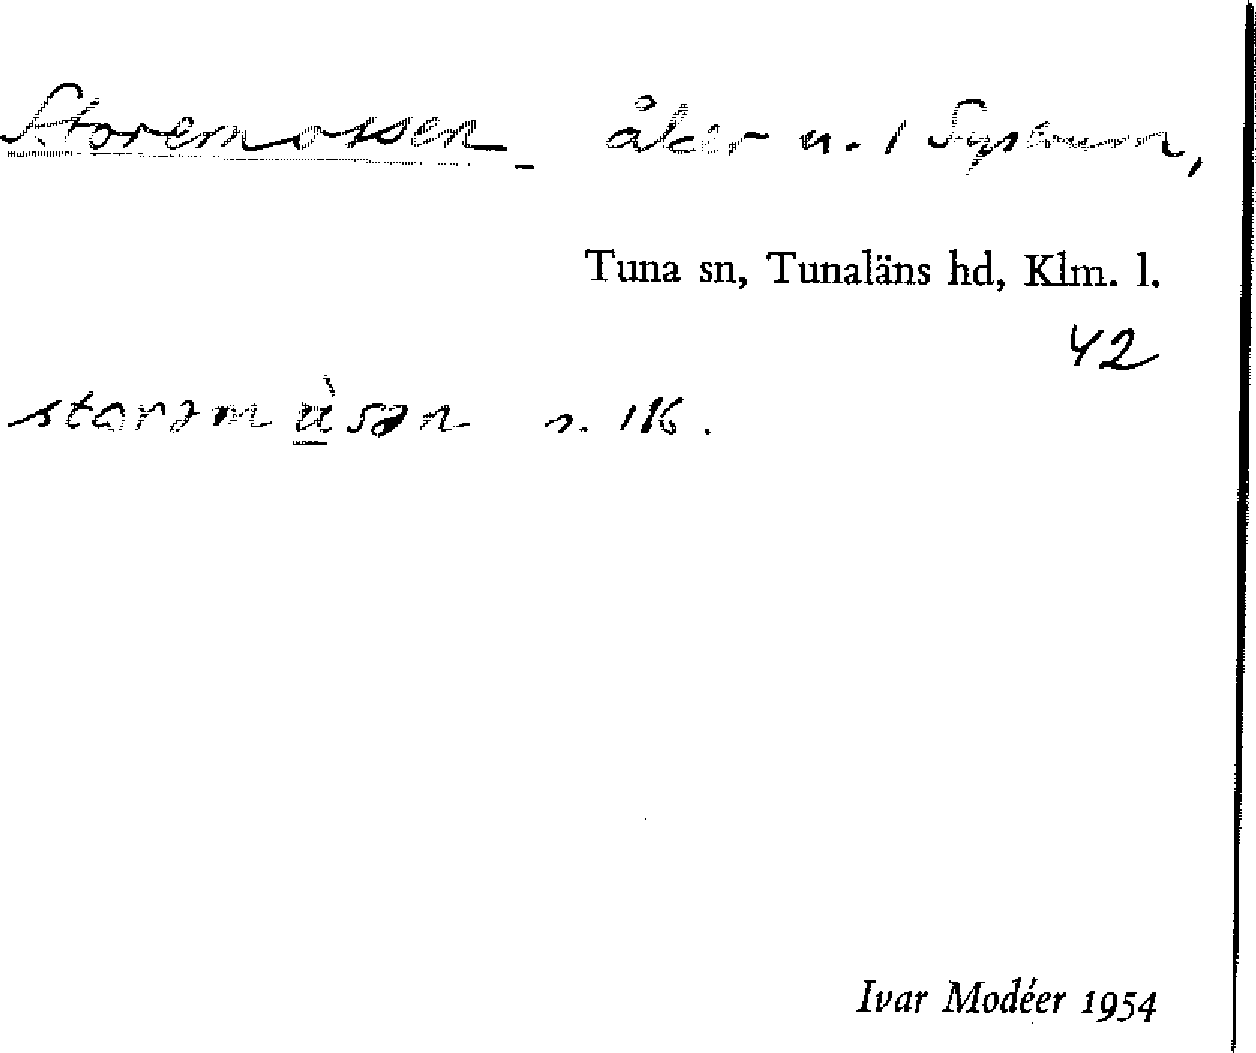 Storemossen åker n. 1
Tuna sn, Tunaläns hd, Klm. l.
42
storəmùsən
Ivar Modéer 1954